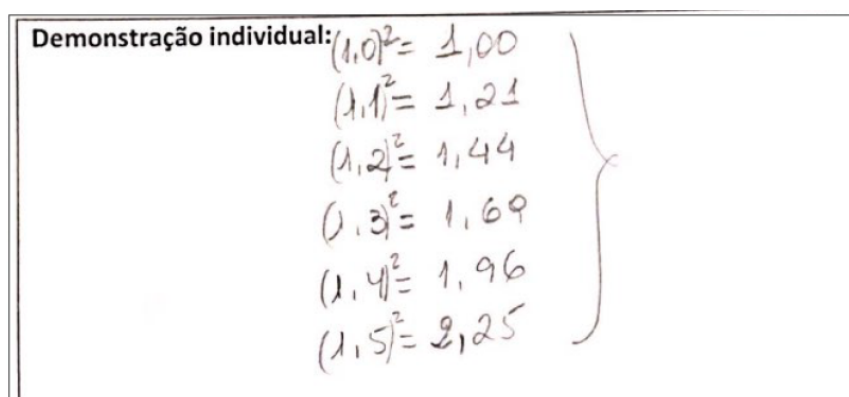 Demonstração individual: (1,0)² = 1,00
(1,1)² = 1,21
(1,2)² = 1,44
(1,3)² = 1,69
(1,4)² = 1,96
(1,5)² = 2,25